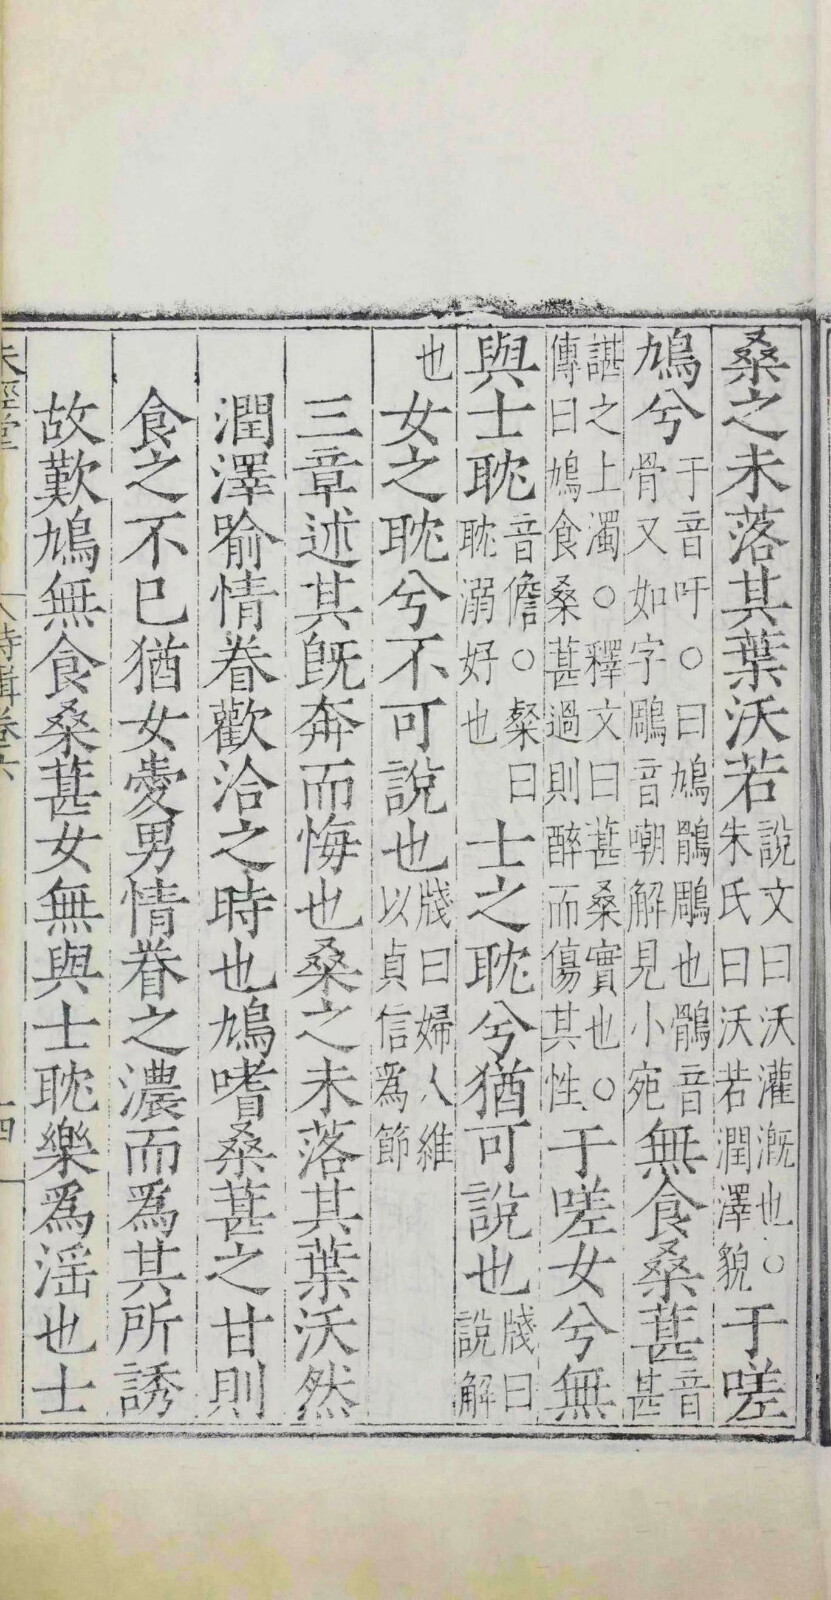 桑之未落其葉沃若說文曰沃灌溉也○朱氏曰沃若潤澤貌于嗟
鳩兮于音吁○曰鳩鶻鵰也鶻音骨又如字鵰音嘲解見小宛無食桑葚音甚
諶之上濁○釋文曰葚桑實也○傳曰鳩食桑葚過則醉而傷其性于嗟女兮無
與士耽音儋○粲曰耽溺好也士之耽兮猶可說也牋曰說解
也女之耽兮不可說也牋曰婦人維以貞信爲節
三章述其旣奔而悔也桑之未落其葉沃然
潤澤喻情眷歡洽之時也鳩嗜桑葚之甘則
食之不已猶女愛男情眷之濃而爲其所誘
故歎鳩無食桑葚女無與士耽樂爲淫也士
詩緝卷六